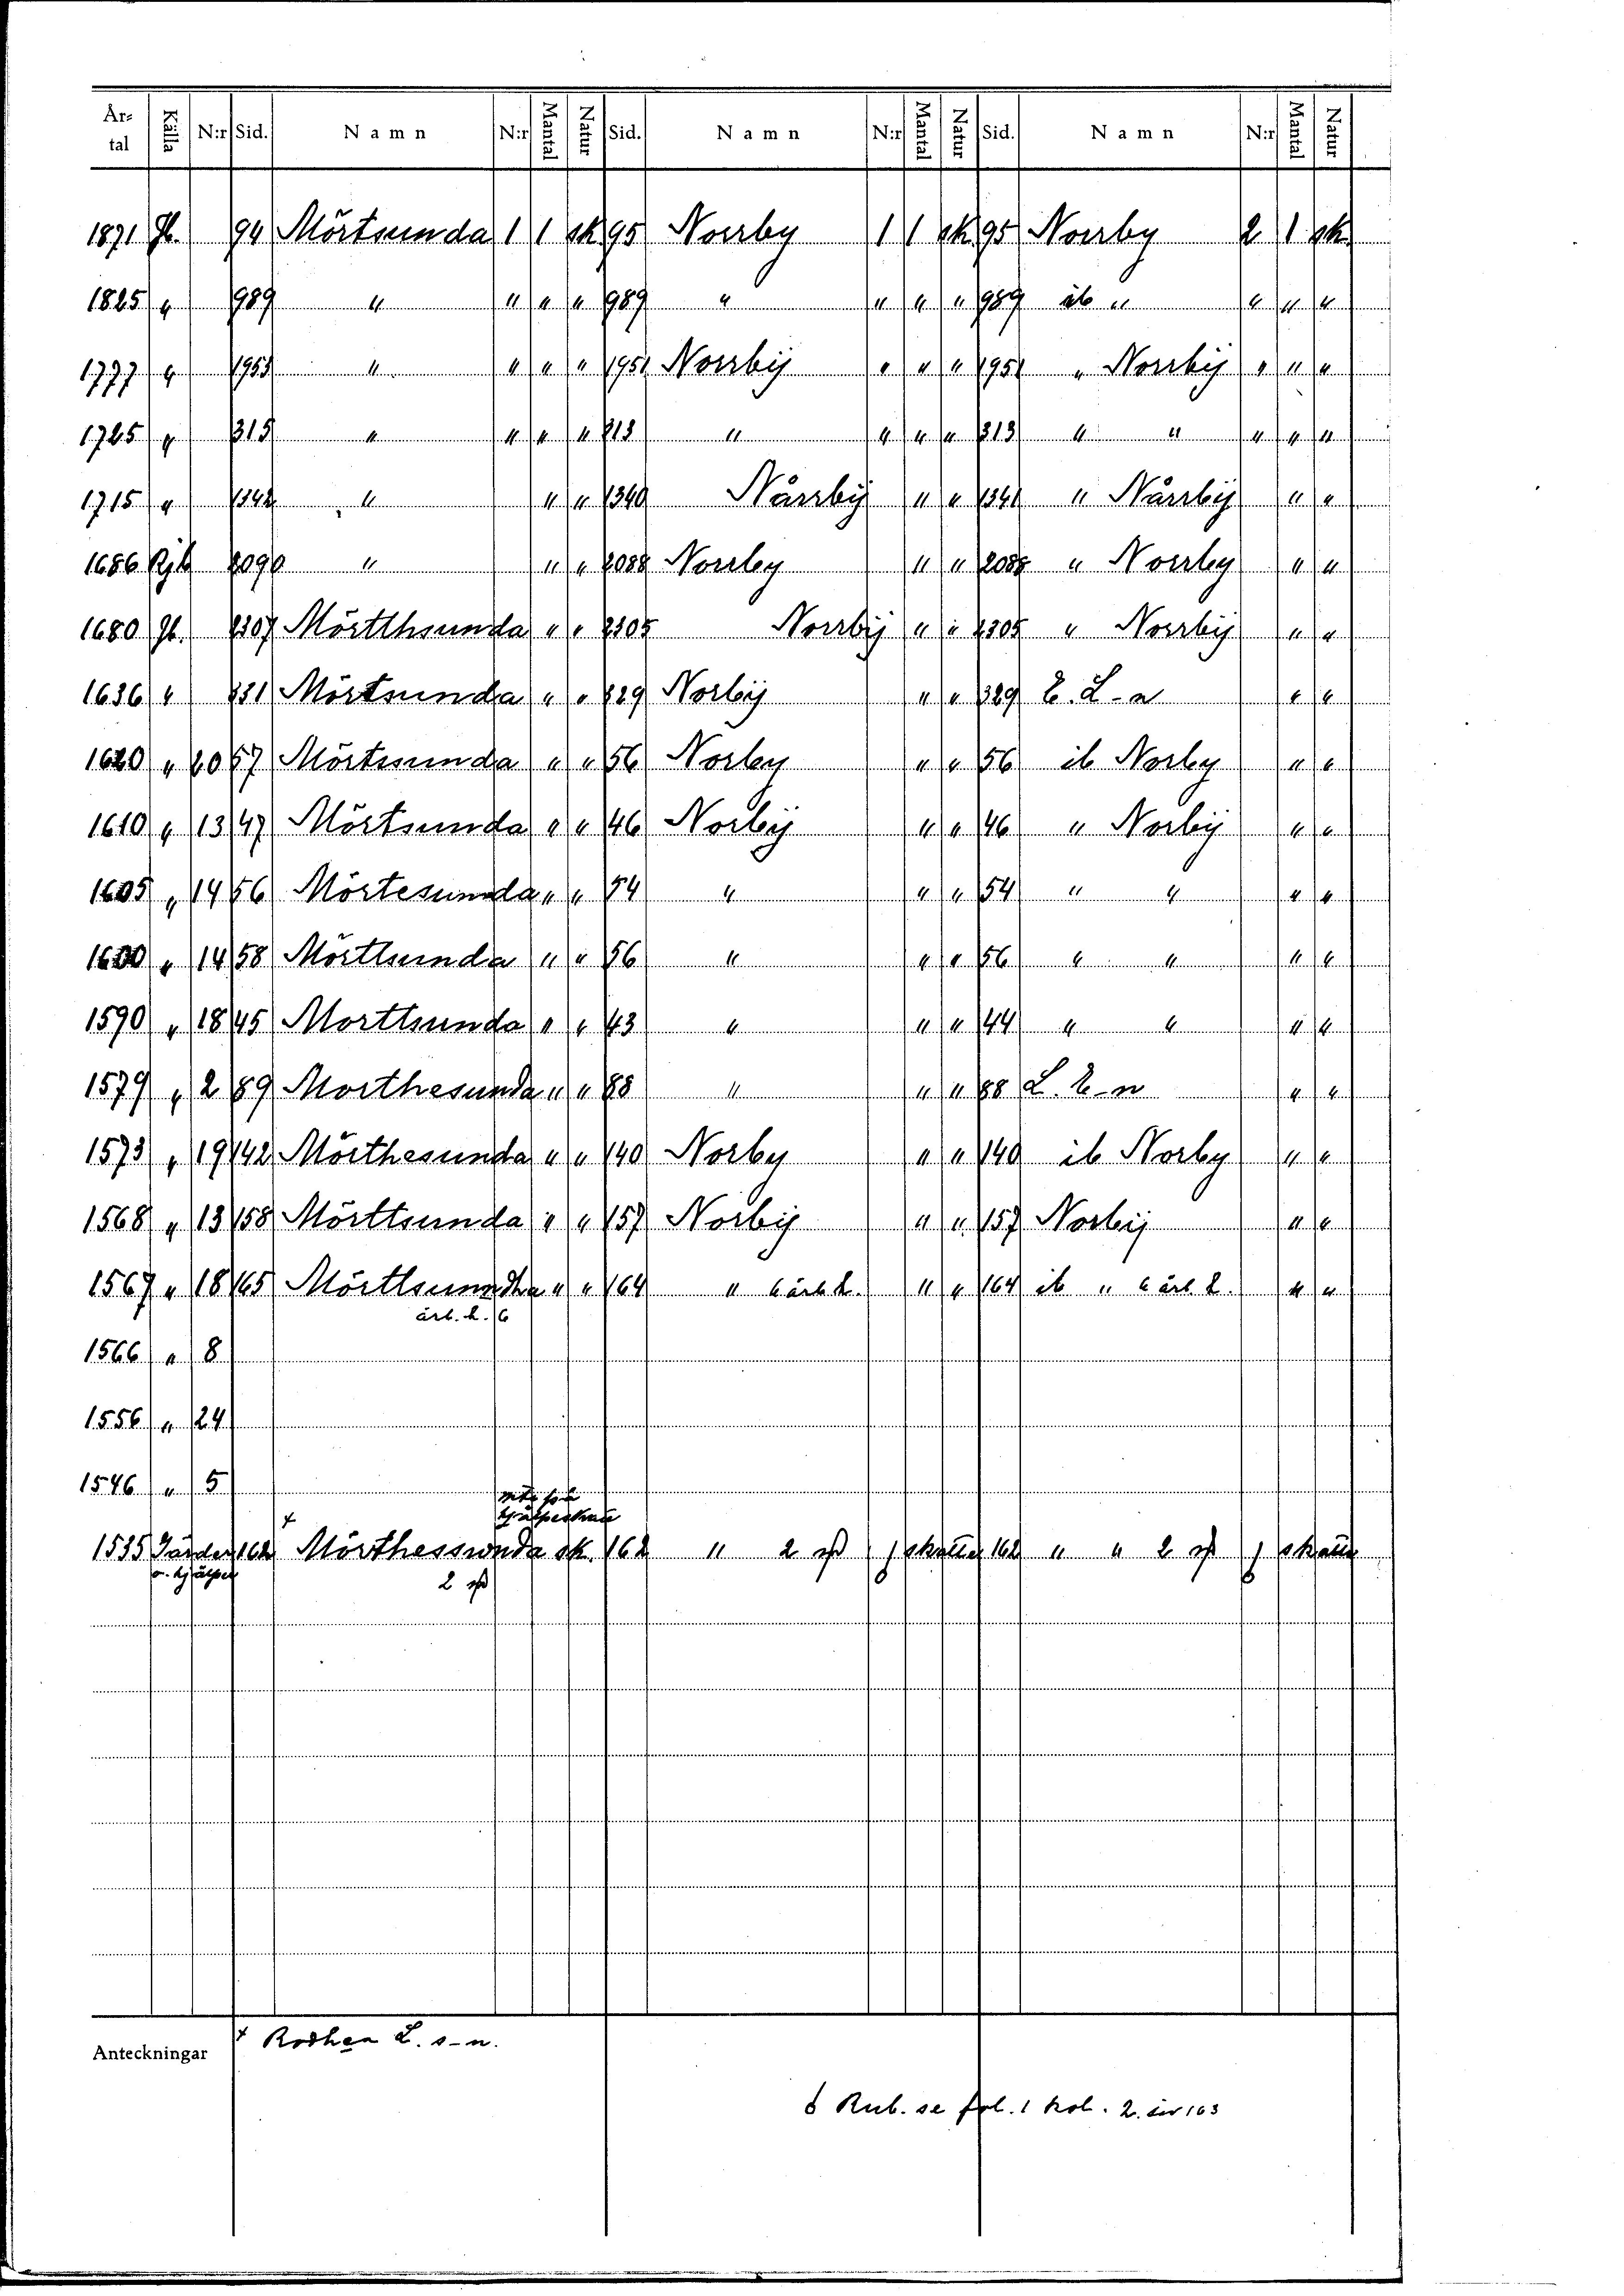 År-tal Källa N:r Sid. Namn N:r Mantal Natur Sid. Namn N:r Mantal Natur Sid. Namn N:r Mantal Natur
1871 Jb. 94 Mörtsunda 1 1 sk 95 Norrby 1 1 sk 95 Norrby 2 1 sk
1825 " 989 " " " " 989 " " " " 989 ib " " " "
1777 " 1953 " " " " 1951 Norrbÿ " " " 1951 " Norrbÿ " " "
1725 " 315 " " " " 313 " " " " 313 " " " " "
1715 " 1342 " " " 1340 Nårrbÿ " " 1341 " Nårrbÿ " "
1686 Rjb 2090 " " " 2088 Norrby " " 2088 " Norrby " "
1680 Jb. 2307 Mörtthsunda " " 2305 Norrbÿ " " 2305 " Norrbÿ " "
1636 " 331 Mörtsunda " " 329 Norbÿ " " 329 E. L-n " "
1620 " 20 57 Mörtssunda " " 56 Norby " " 56 ib Norby " "
1610 " 13 47 Mörtsunda " " 46 Norbÿ " " 46 " Norbÿ " "
1605 " 14 56 Mörtesunda " " 54 " " " 54 " " " "
1600 " 14 58 Mörttsunda " " 56 " " " 56 " " " "
1590 " 18 45 Morttsunda " " 43 " " " 44 " " " "
1579 " 2 89 Morthesunda " " 88 " " " 88 L. E-n " "
1573 " 19 142 Mörthesunda " " 140 Norby " " 140 ib Norby " "
1568 " 13 158 Mörttsunda " " 157 Norbÿ " " 157 Norbÿ " "
1567 " 18 165 Mörttsundha " " 164 " 6 årl. h. " " 164 ib " 6 årl. h. " "
årl. h. 6
1566 " 8
1556 " 24
1546 " 5
1535 Gärder 162 × Mörthessunda sk. 162 " 2 skatte 162 " " 2 skatte
o. hjälper 2
Anteckningar × Rodhen L. s-n.
Rub. se fol. 1 kol. 2. 163